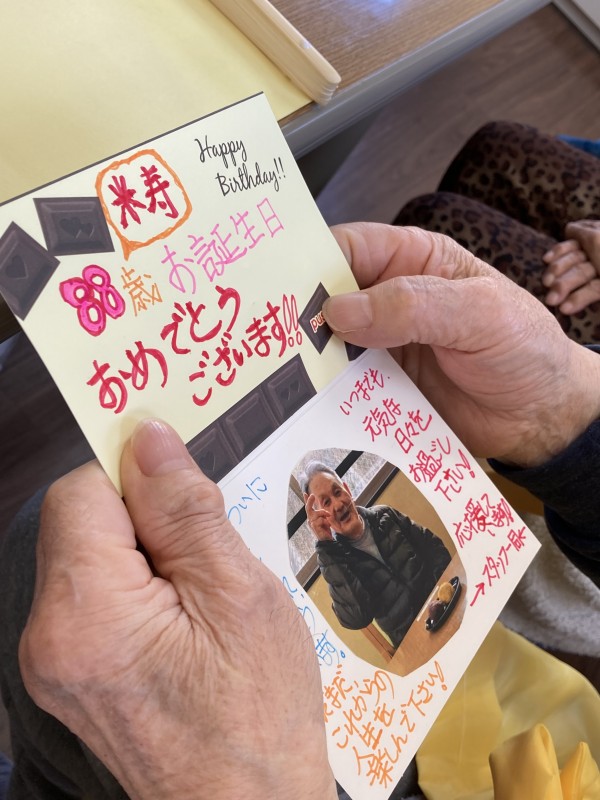 Happy
Birthday!!
米寿
88歳 お誕生日
おめでとう
ございます!!
いつまでも、
元気な
日々を
お過ごし
下さい!
応援して
ます!!
→スタッフ一同〜
ついに
ます。
まだ、
これからの
人生を
楽しんで下さい!